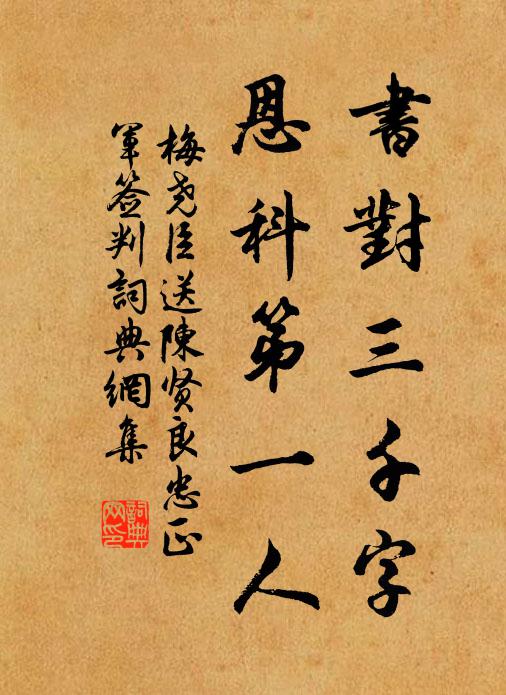 書對三千字
恩科第一人
梅堯臣送陳贤良忠正
軍簽判詞典網集
詞典网印